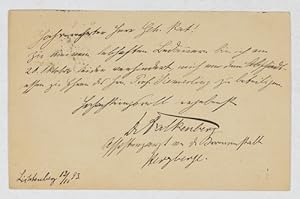 Hochverehrter Herr Geh. Rat!
Zu meinem lebhaften Bedauern bin ich am
21. Oktober leider verhindert, mich an dem
zu Ehren des Herrn Prof. zu beteiligen
Hochachtungsvoll ergebenst
Dr Falkenberg
Assistenzarzt an der Irrenanstalt
Herzberge.
Lichtenberg 93